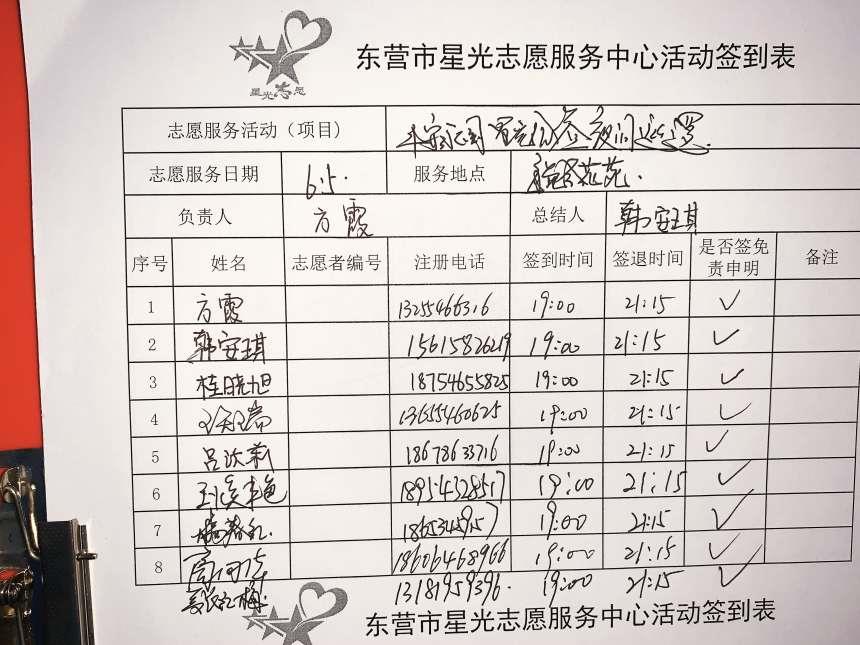 东营市星光志愿服务中心活动签到表
星光志愿
志愿服务活动（项目） 夜间巡逻
志愿服务日期 6.5. 服务地点
负责人 方霞 总结人 韩安琪
序号 姓名 志愿者编号 注册电话 签到时间 签退时间 是否签免责申明 备注
1 方霞 13255466316 19:00 21:15 ✓
2 韩安琪 15615826219 19:00 21:15 ✓
3 桂晓旭 18754655825 19:00 21:15 ✓
4 13655460625 19:00 21:15 ✓
5 18678633716 19:00 21:15 ✓
6 18954328517 19:00 21:15 ✓
7 19:00 21:15 ✓
8 18606468966 19:00 21:15 ✓
13181959396. 19:00 21:15 ✓
东营市星光志愿服务中心活动签到表